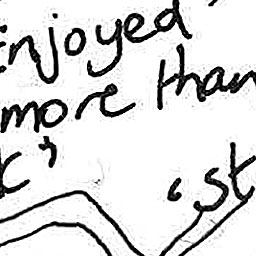 Enjoyed
more than
c"
"st